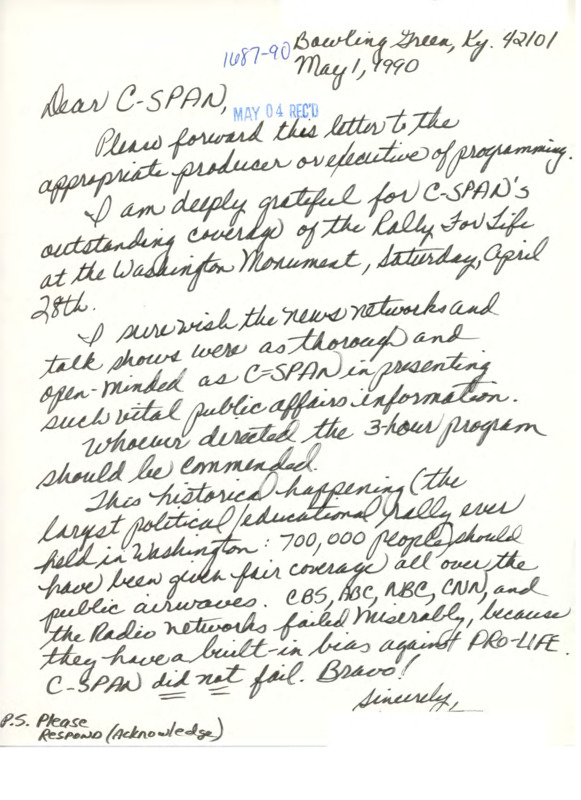 1687-90 Bowling Green, Ky. 42101
May 1, 1990
Dear C-SPAN,
MAY 04 REC'D
Please forward this letter to the
appropriate producer or executive of programming.
I am deeply grateful for C-SPAN's
outstanding coverage of the Rally For Life
at the Washington Monument, Saturday, April
28th.
I sure wish the news networks and
talk shows were as thorough and
open-minded as C-SPAN in presenting
such vital public affairs information.
Whoever directed the 3-hour program
should be commended.
This historical happening (the
largest political/educational rally ever
held in Washington: 700,000 people) should
have been given fair coverage all over the
public airwaves. CBS, ABC, NBC, CNN, and
the Radio networks failed miserably, because
they have a built-in bias against PRO-LIFE.
C-SPAN did not fail. Bravo!
Sincerely,
P.S. Please
RESPOND (Acknowledge)